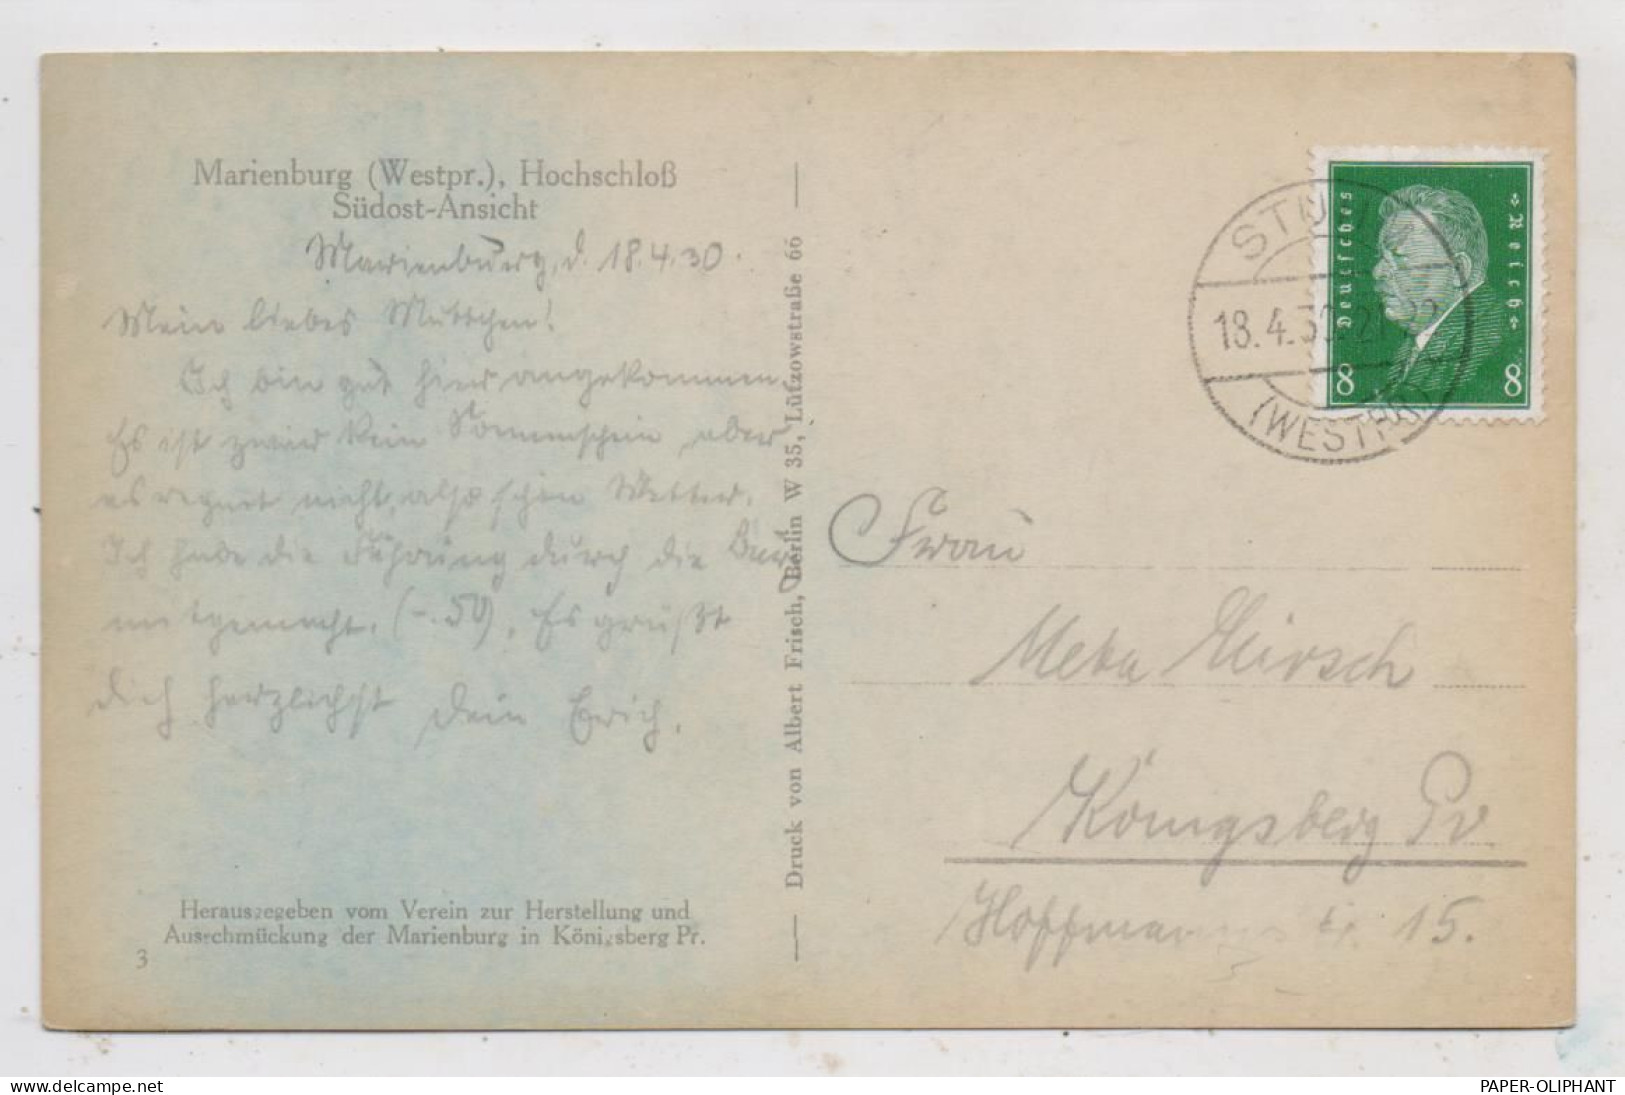 Marienburg (Westpr.), Hochschloß
Südost-Ansicht
Marienburg, d. 18.4.30.
Mein liebes Muttchen!
Ich bin gut hier angekommen.
Es ist zwar kein Sonnenschein, aber
es regnet nicht, also schön Wetter.
Ich habe die Führung durch die Burg
mitgemacht. (-.50). Es grüßt
dich herzlichst dein Erich.
Herausgegeben vom Verein zur Herstellung und
Ausschmückung der Marienburg in Königsberg Pr.
3
Druck von Albert Frisch, Berlin W 35, Lützowstraße 66
STUHM
18.4.30. 21-22
(WESTPR)
Deutsches
Reich
8
8
Frau
Meta Hirsch
Königsberg Pr
15.
delcampe.net
PAPER-OLIPHANT